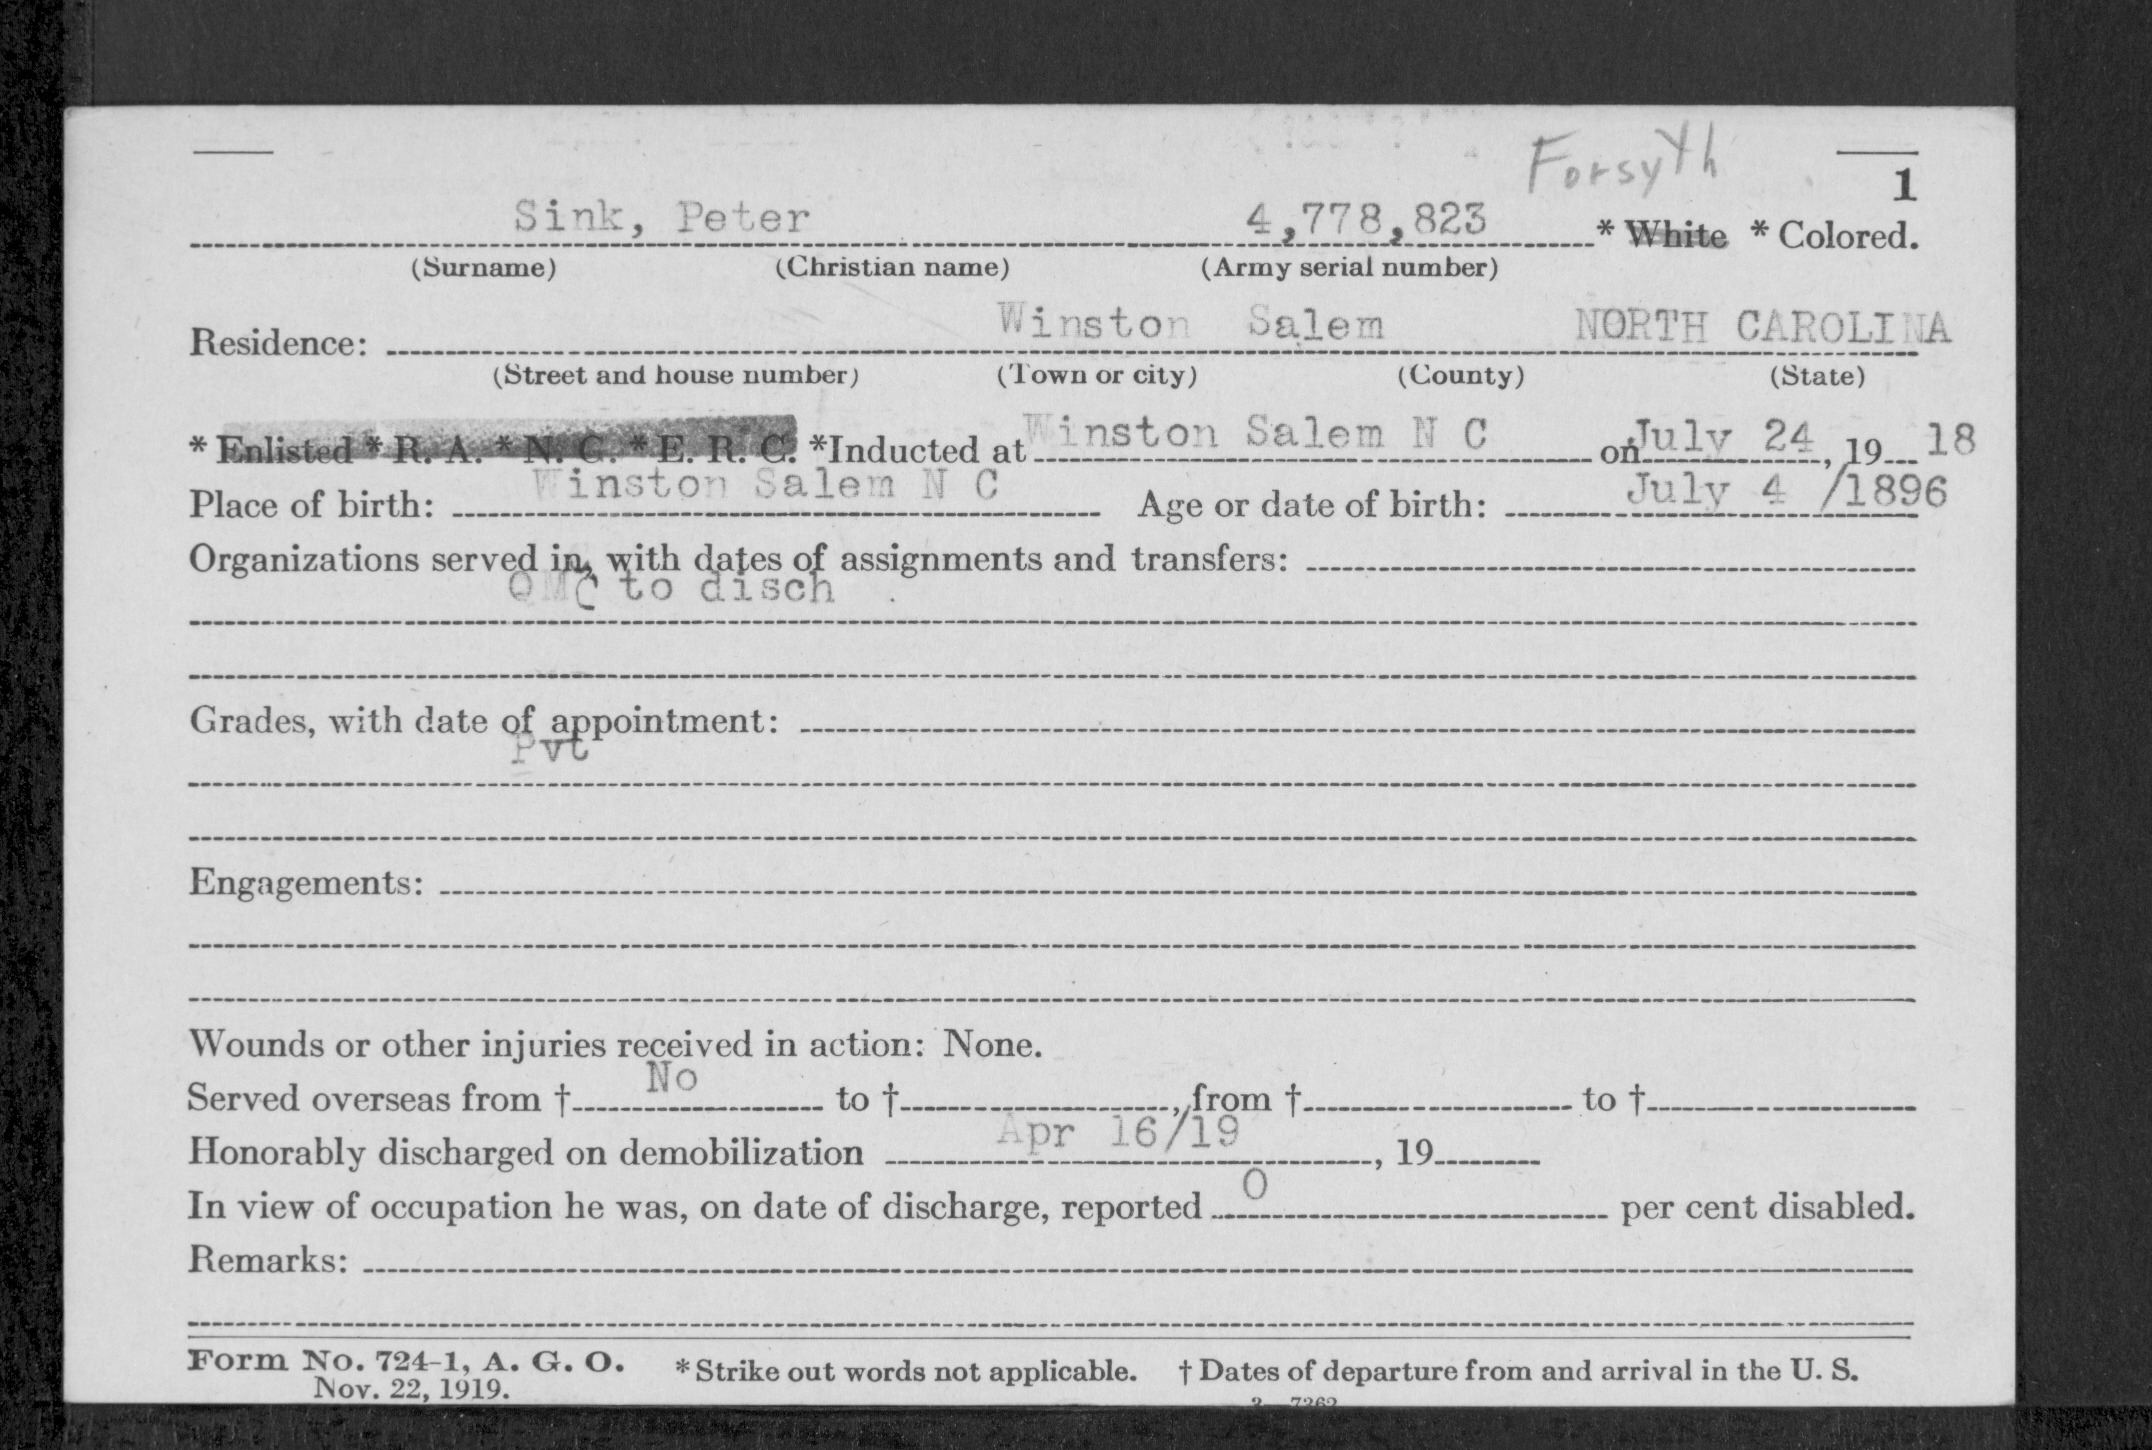 Forsyth
1
Sink, Peter 4,778,823 * White * Colored.
(Surname) (Christian name) (Army serial number)
Winston Salem NORTH CAROLINA
Residence:
(Street and house number) (Town or city) (County) (State)
* Enlisted * R. A. * N. G. * E. R. C. *Inducted at Winston Salem N C on July 24, 19 18
Place of birth: Winston Salem N C Age or date of birth: July 4 /1896
Organizations served in, with dates of assignments and transfers:
QMC to disch
Grades, with date of appointment:
Pvt
Engagements:
Wounds or other injuries received in action: None.
Served overseas from † No to †, from † to †
Honorably discharged on demobilization Apr 16/19, 19
In view of occupation he was, on date of discharge, reported 0 per cent disabled.
Remarks:
Form No. 724-1, A. G. O. * Strike out words not applicable. † Dates of departure from and arrival in the U. S.
Nov. 22, 1919.